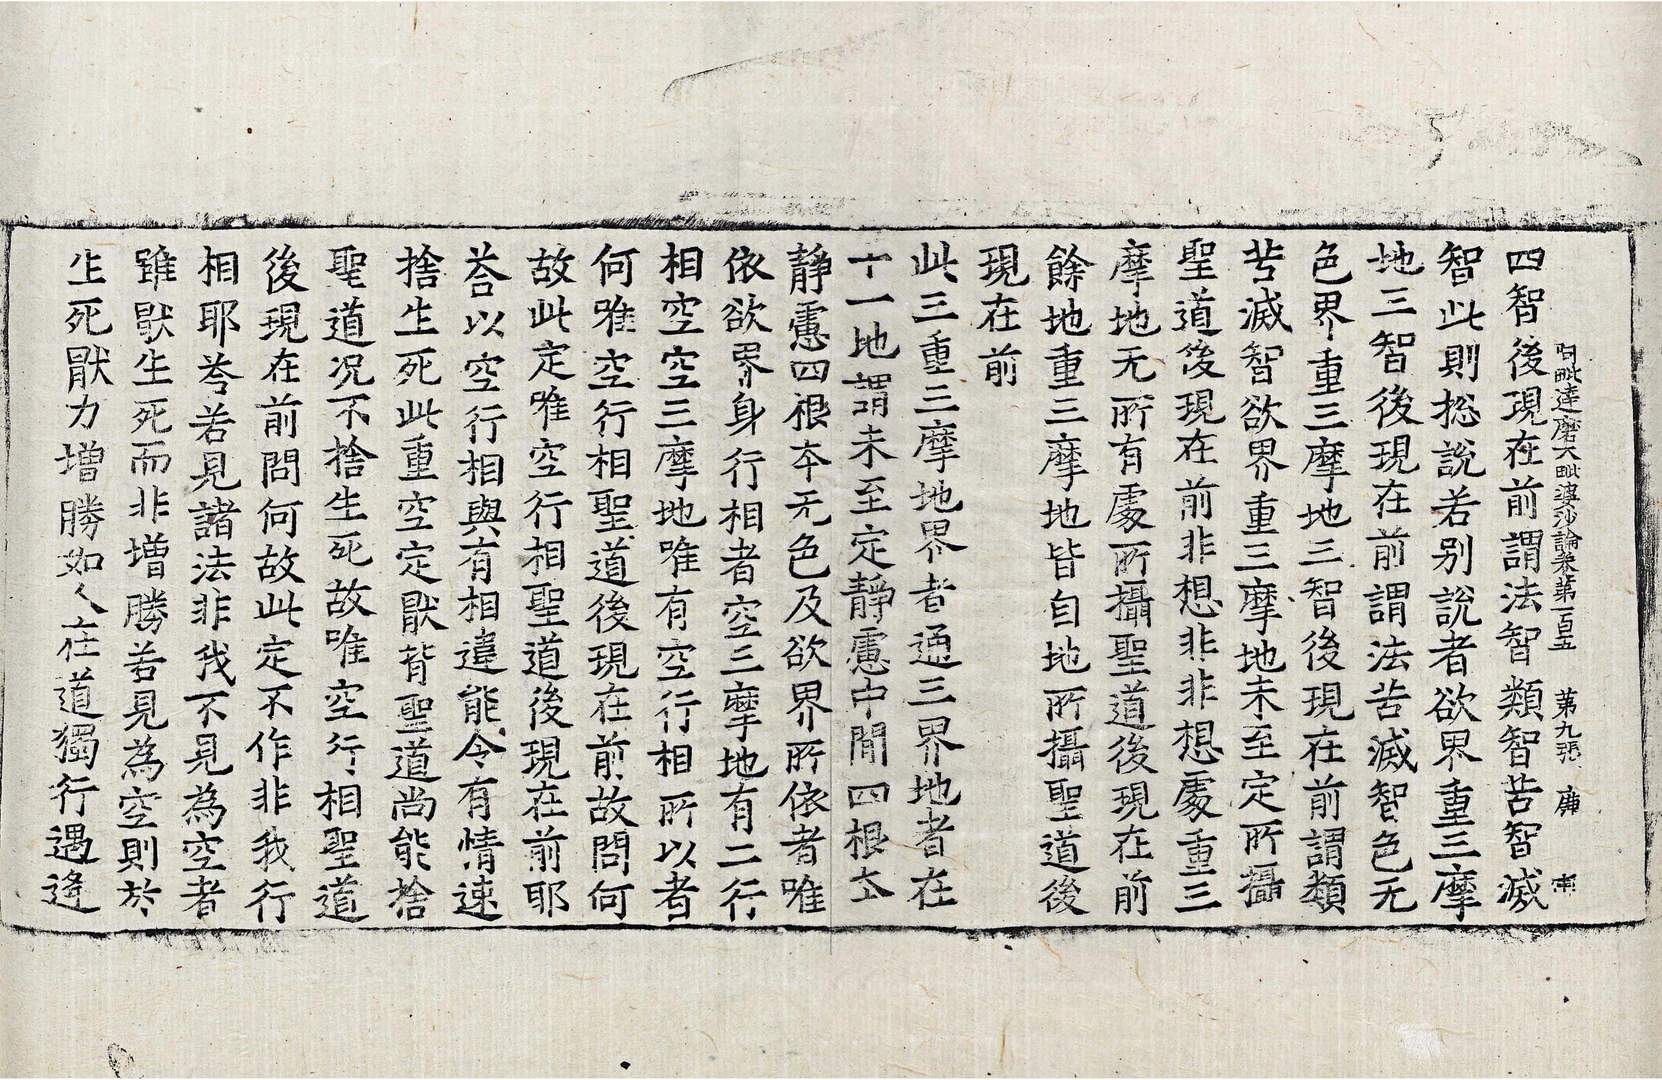 阿毗達磨大毗婆沙論卷第一百五 第九張 廉
四智後現在前謂法智類智苦智滅
智此則揔說若別說者欲界重三摩
地三智後現在前謂法苦滅智色无
色界重三摩地三智後現在前謂類
苦滅智欲界重三摩地未至定所攝
聖道後現在前非想非非想處重三
摩地无所有處所攝聖道後現在前
餘地重三摩地皆自地所攝聖道後
現在前
此三重三摩地界者通三界地者在
十一地謂未至定靜慮中閒四根本
靜慮四根本无色及欲界所依者唯
依欲界身行相者空三摩地有二行
相空空三摩地唯有空行相所以者
何唯空行相聖道後現在前故問何
故此定唯空行相聖道後現在前耶
荅以空行相與有相違能令有情速
捨生死此重空定猒背聖道尚能捨
聖道況不捨生死故唯空行相聖道
後現在前問何故此定不作非我行
相耶荅若見諸法非我不見為空者
雖猒生死而非增勝若見為空則於
生死猒力增勝如人在道獨行遇逢